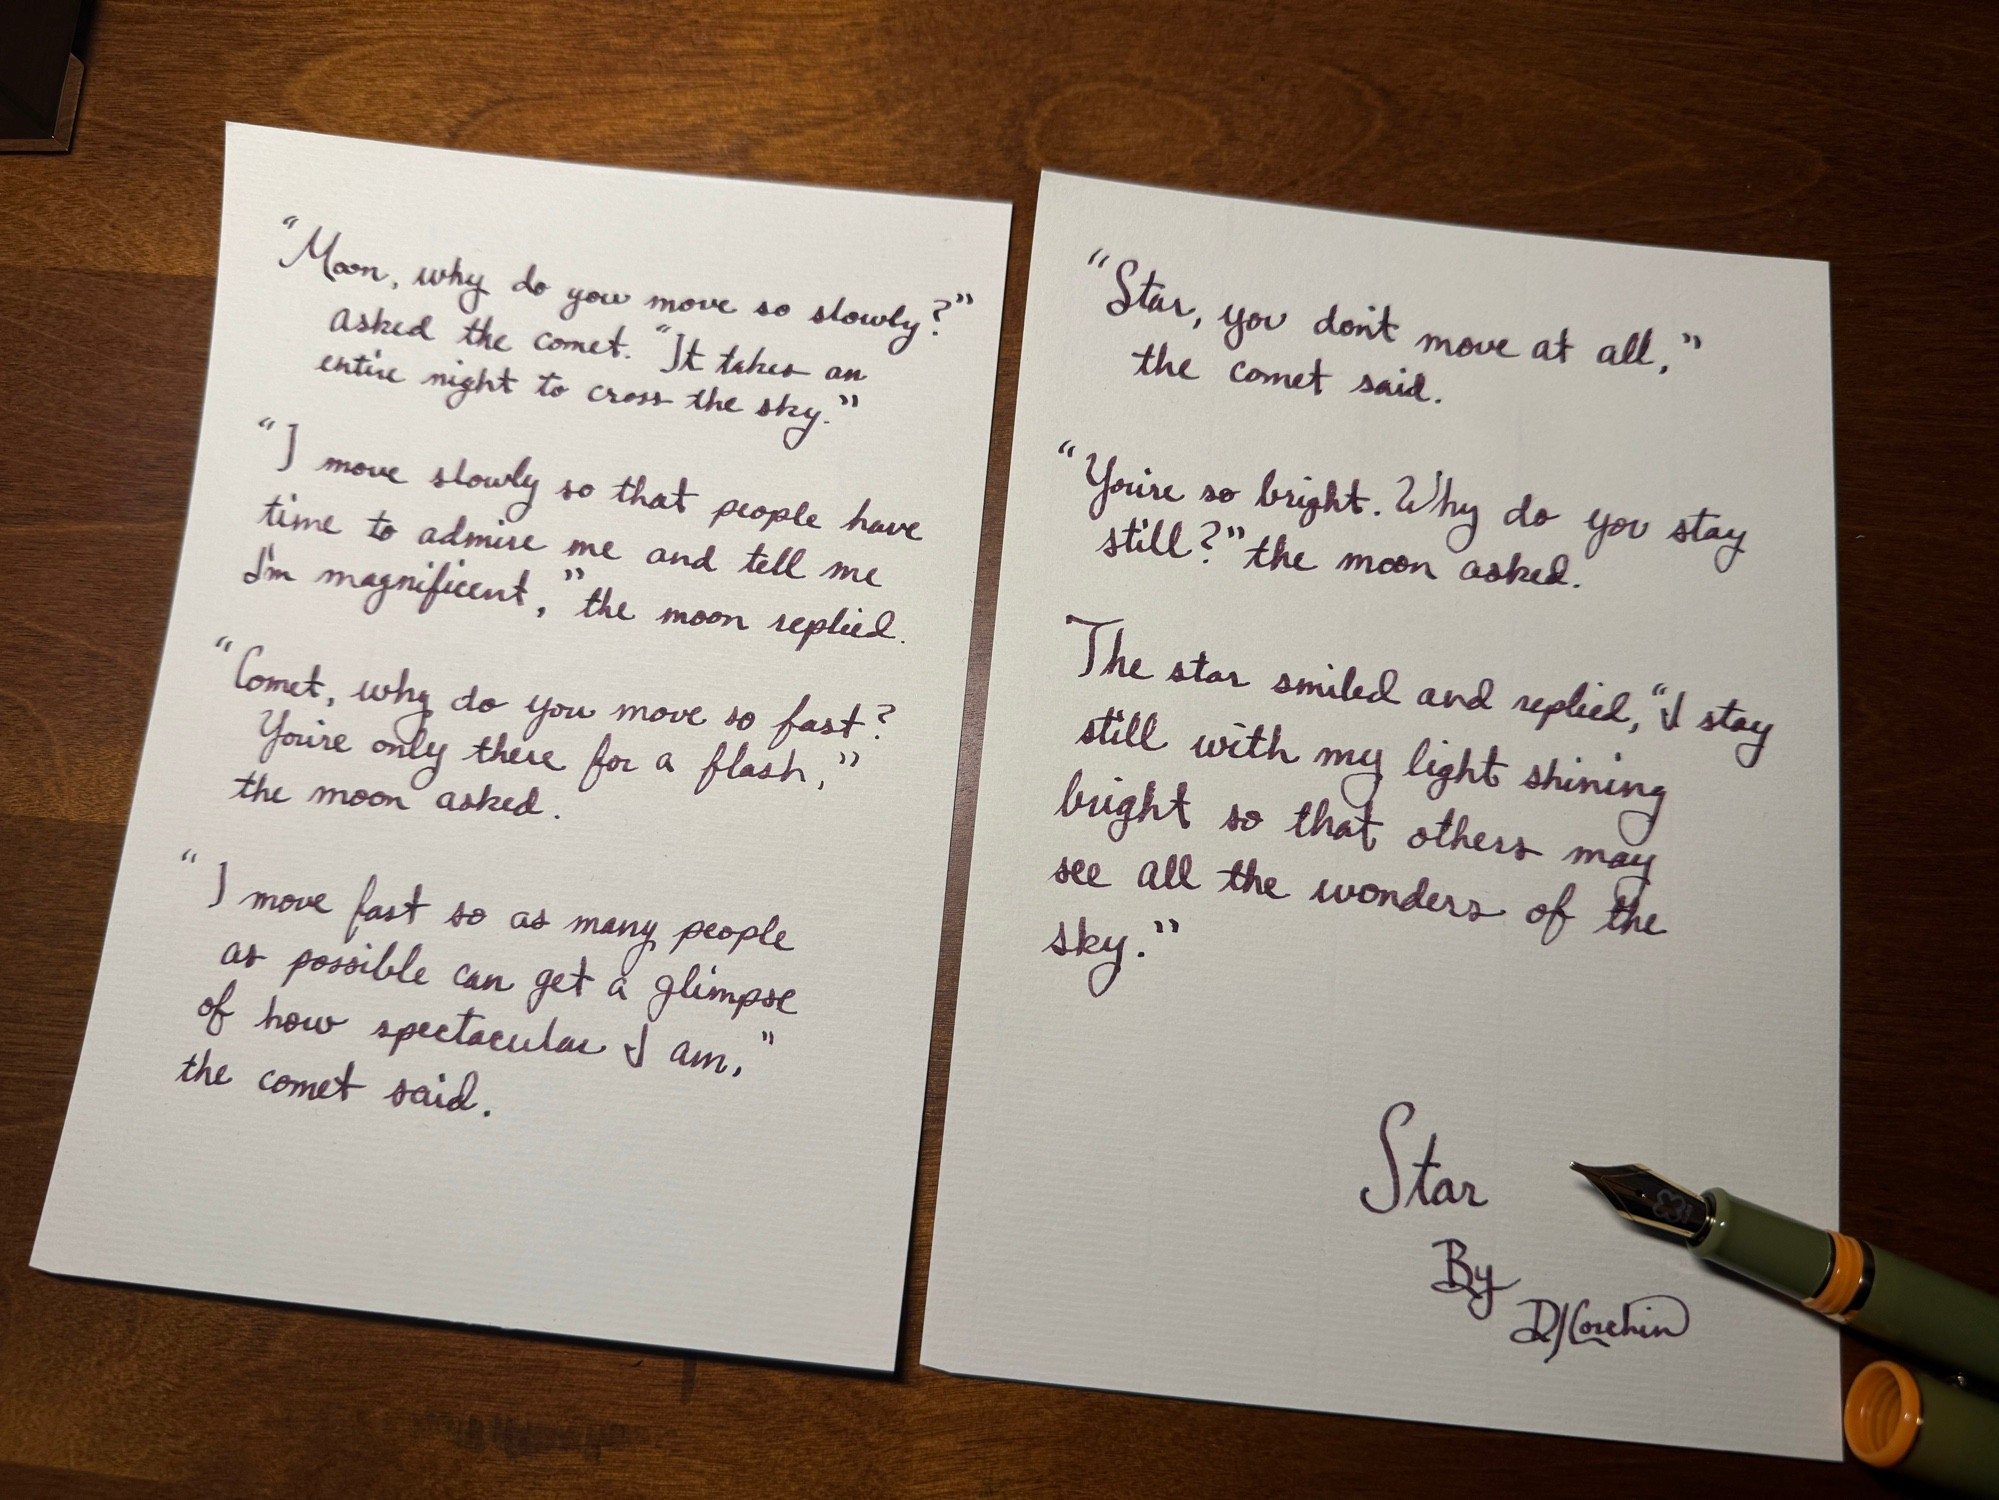 “Moon, why do you move so slowly?”
asked the comet. “It takes an
entire night to cross the sky.”
“I move slowly so that people have
time to admire me and tell me
I'm magnificent,” the moon replied.
“Comet, why do you move so fast?
You're only there for a flash,”
the moon asked.
“I move fast so as many people
as possible can get a glimpse
of how spectacular I am,”
the comet said.
“Star, you don't move at all,”
the comet said.
“You're so bright. Why do you stay
still?” the moon asked.
The star smiled and replied, “I stay
still with my light shining
bright so that others may
see all the wonders of the
sky.”
Star
By
DJ Corchin